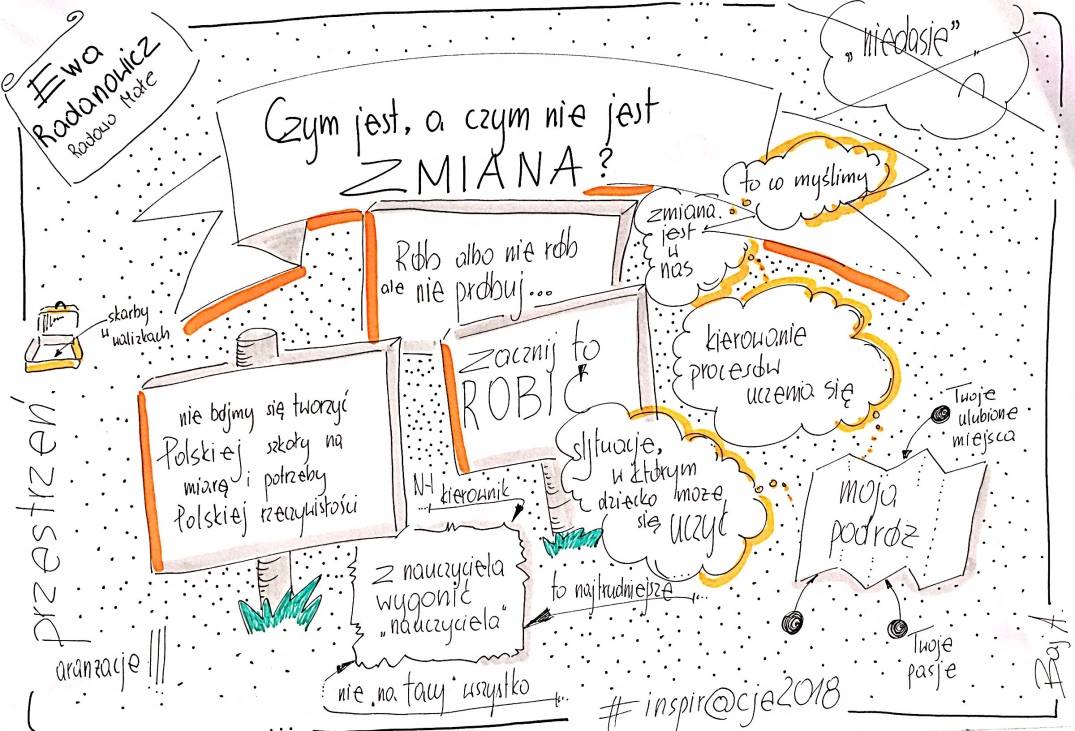 Ewa
Radanowicz
Radowo Małe
„niedasię”
Czym jest, a czym nie jest
ZMIANA?
to co myślimy
zmiana
jest
w
nas
Rób albo nie rób
ale nie próbuj...
skarby
w walizkach
kierowanie
procesów
uczenia się
Zacznij to
ROBIĆ
nie bójmy się tworzyć
Polskiej szkoły na
miarę i potrzeby
Polskiej rzeczywistości
Twoje
ulubione
miejsca
sytuacje,
w którym
dziecko może
się uczyć
N-l kierownik
moja
podróż
z nauczyciela
wygonić
„nauczyciela”
to najtrudniejsze...
przestrzeń
aranżacje!!!
nie „na tacy” wszystko...
Twoje
pasje
#inspir@cje2018
Baj A.